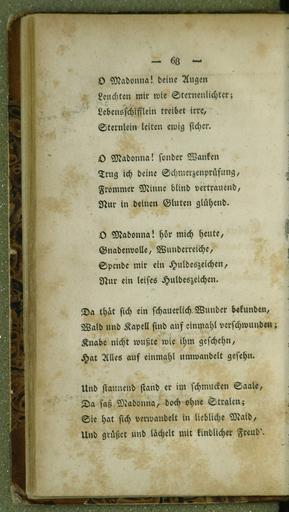 — 68 —
O Madonna! deine Augen
Leuchten mir wie Sternenlichter;
Lebensschifflein treibet irre,
Sternlein leiten ewig sicher.
O Madonna! sonder Wanken
Trug ich deine Schmerzenprüfung,
Frommer Minne blind vertrauend,
Nur in deinen Gluten glühend.
O Madonna! hör mich heute,
Gnadenvolle, Wunderreiche,
Spende mir ein Huldeszeichen,
Nur ein leises Huldeszeichen.
Da thät sich ein schauerlich Wunder bekunden,
Wald und Kapell sind auf einmahl verschwunden;
Knabe nicht wußte wie ihm geschehn,
Hat Alles auf einmahl umwandelt gesehn.
Und staunend stand er im schmucken Saale,
Da saß Madonna, doch ohne Stralen;
Sie hat sich verwandelt in liebliche Maid,
Und grüßet und lächelt mit kindlicher Freud'.